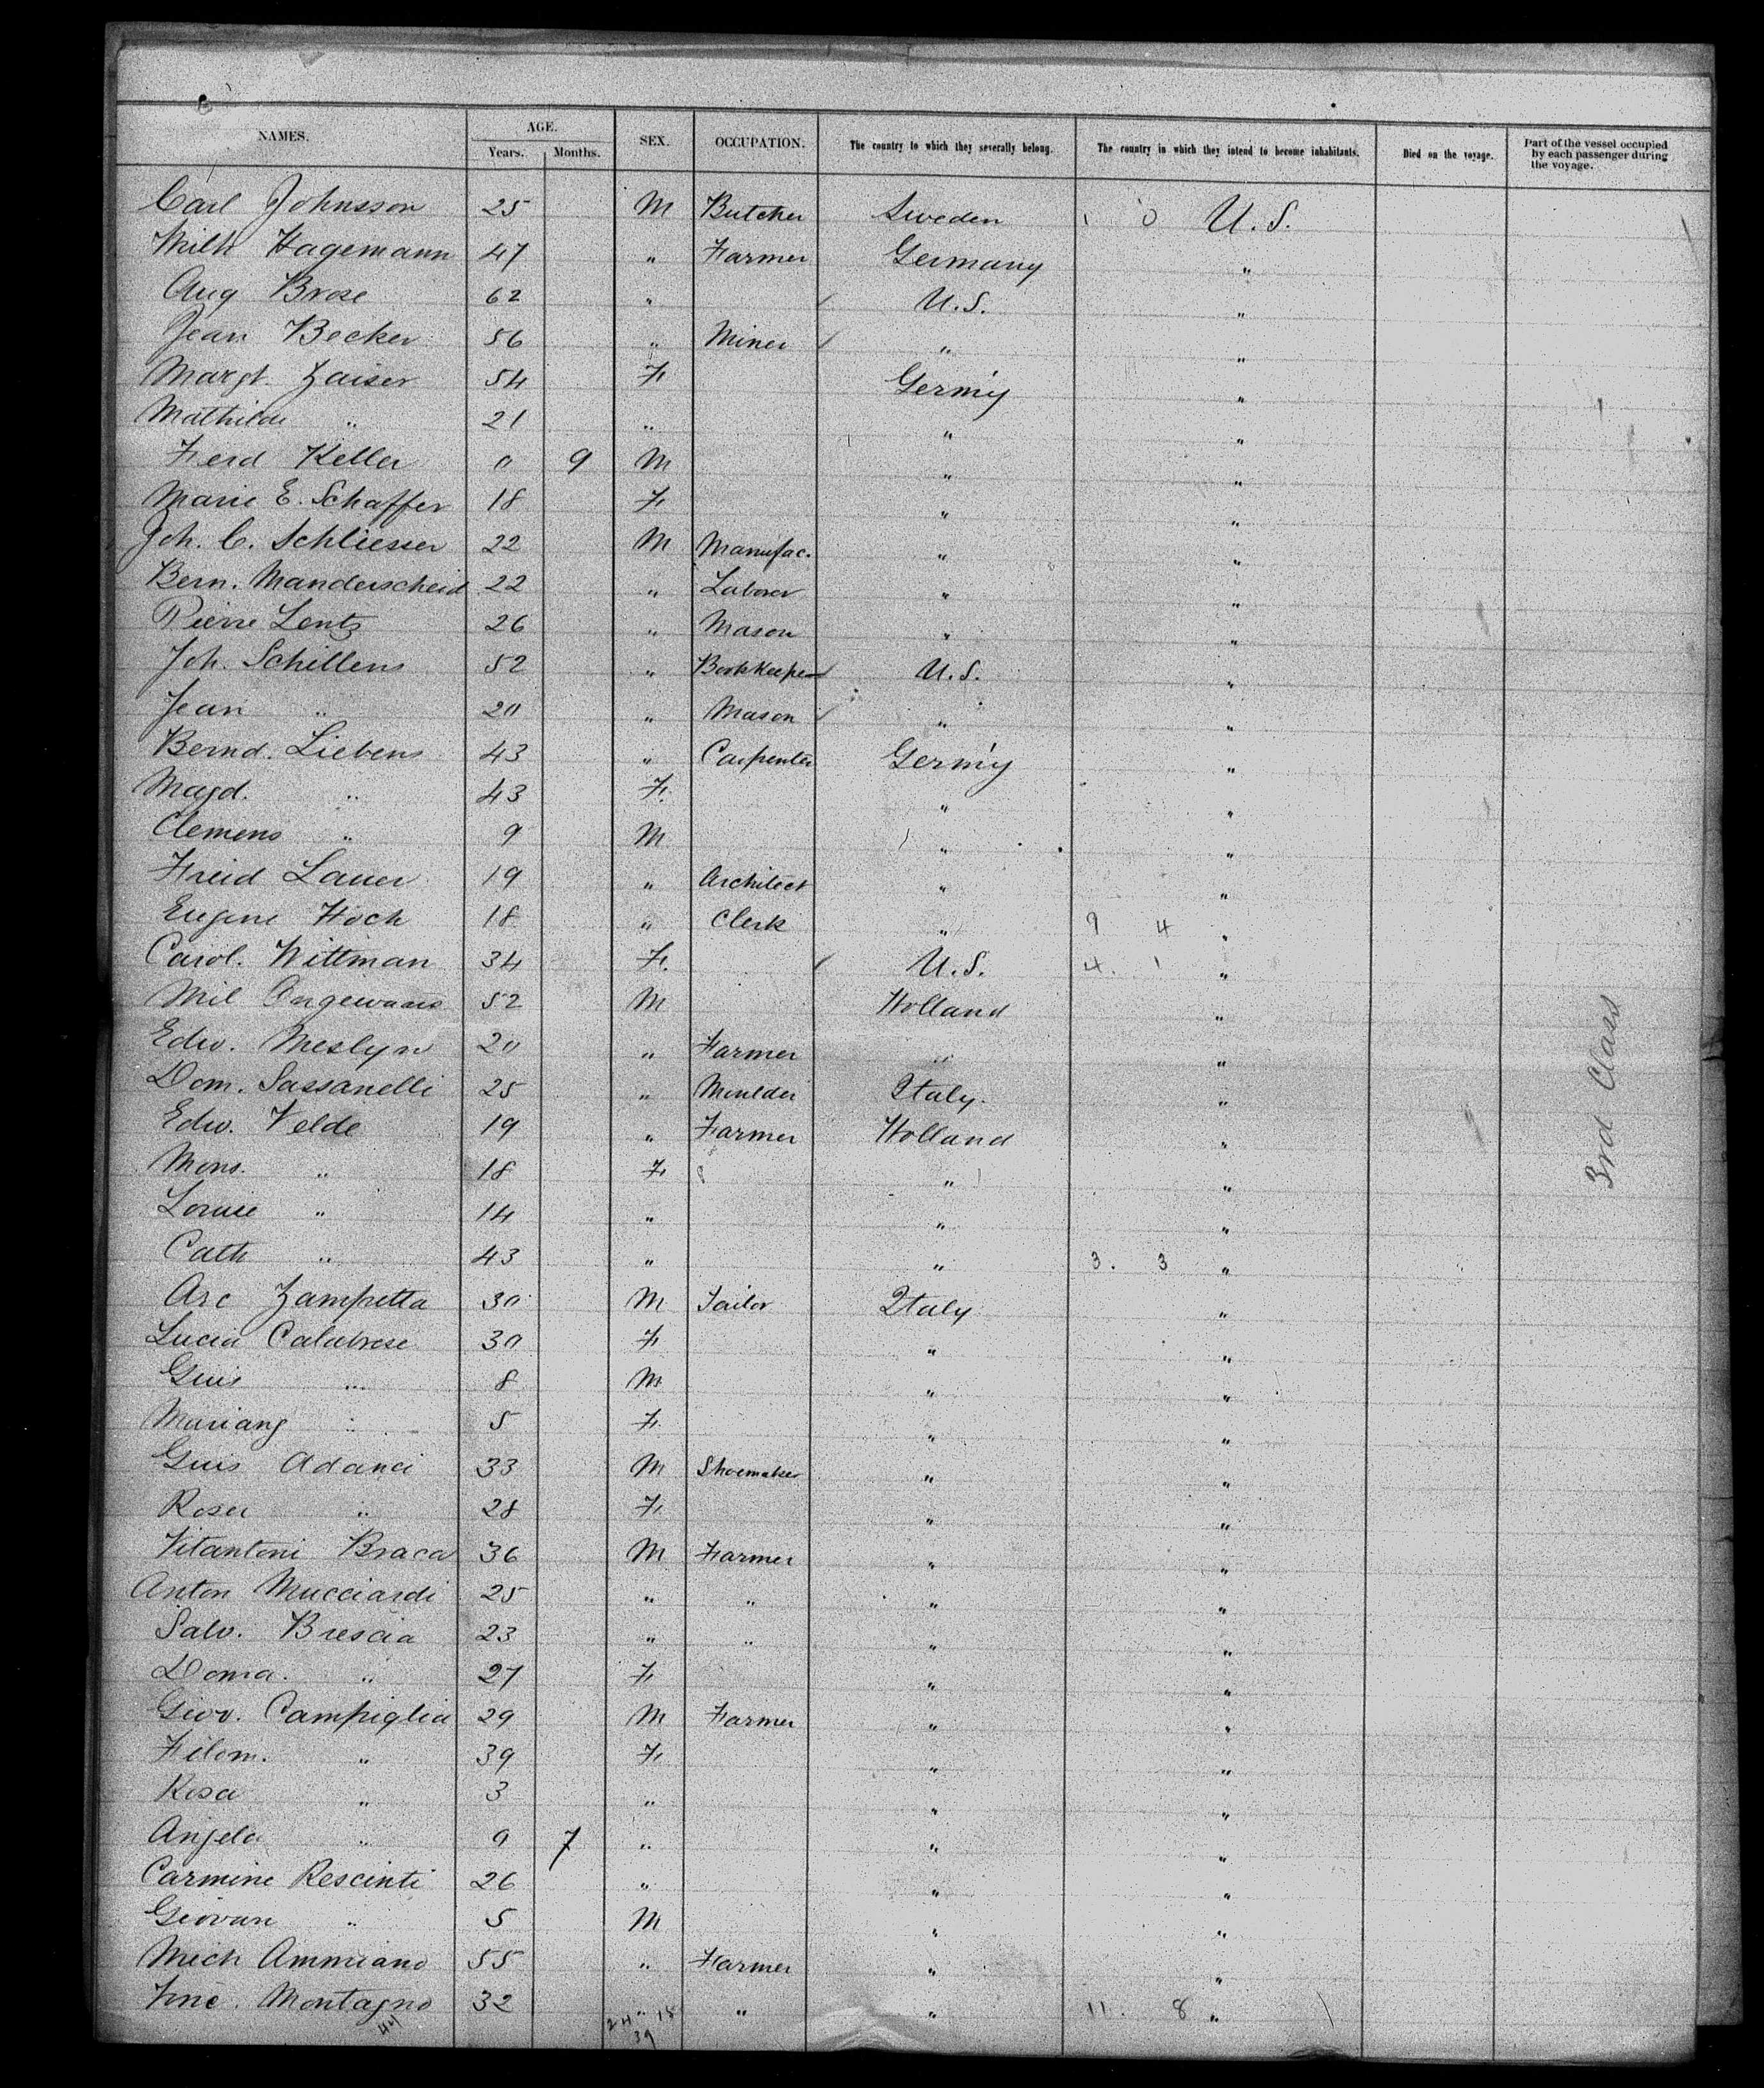 NAMES. AGE. SEX. OCCUPATION. The country to which they severally belong. The country in which they intend to become inhabitants. Died on the voyage. Part of the vessel occupied by each passenger during the voyage.
Years. Months.
Carl Johnsson 25 M Butcher Sweden 1 0 U.S.
Wilh Hagemann 47 " Farmer Germany "
Aug Brose 62 " U.S. "
Jean Becker 56 " Miner " "
Margt. Zaiser 54 F Germ'y "
Mathilde " 21 " " "
Ferd Keller 0 9 M " "
Marie E. Schaffer 18 F " "
Joh. C. Schliesser 22 M Manufac. " "
Bern. Manderscheid 22 " Laborer " "
Pierre Lentz 26 " Mason " "
Joh. Schillens 52 " Bookkeeper U.S. "
Jean " 20 " Mason " "
Bernd. Liebens 43 " Carpenter Germ'y "
Magd. " 43 F. " "
Clemens " 9 M " "
Freid Lauer 19 " Architect " "
Eugene Hoch 18 " Clerk " 9 4 "
Carol. Wittman 34 F. U.S. 4. 1 "
Wil 52 M Holland "
Edw. Meslyn 20 " Farmer " "
Dom. Sassanelli 25 " Moulder Italy. "
Edw. Velde 19 " Farmer Holland "
Mons. " 18 F " "
Louise " 14 " " "
Cath " 43 " " 3. 3 "
Arc Zampetta 30 M Tailor Italy "
Lucia Calabrese 30 F " "
Guis " 8 M " "
Mariang " 5 F. " "
Guis Adanci 33 M Shoemaker " "
Rosa " 28 F. " "
Vitantoni Braca 36 M Farmer " "
Anton Mucciardi 25 " " " "
Salv. Brescia 23 " " " "
Doma. " 27 F " "
Giov. Campiglia 29 M Farmer " "
Filom. " 39 F. " "
Rosa " 3 " " "
Angela " 0 7 " " "
Carmine Rescinti 26 " " "
Giovan " 5 M " "
Mich Ammiano 55 " Farmer " "
Montagno 32 " " " 11. 8 "
44 24 18
39
3rd Class